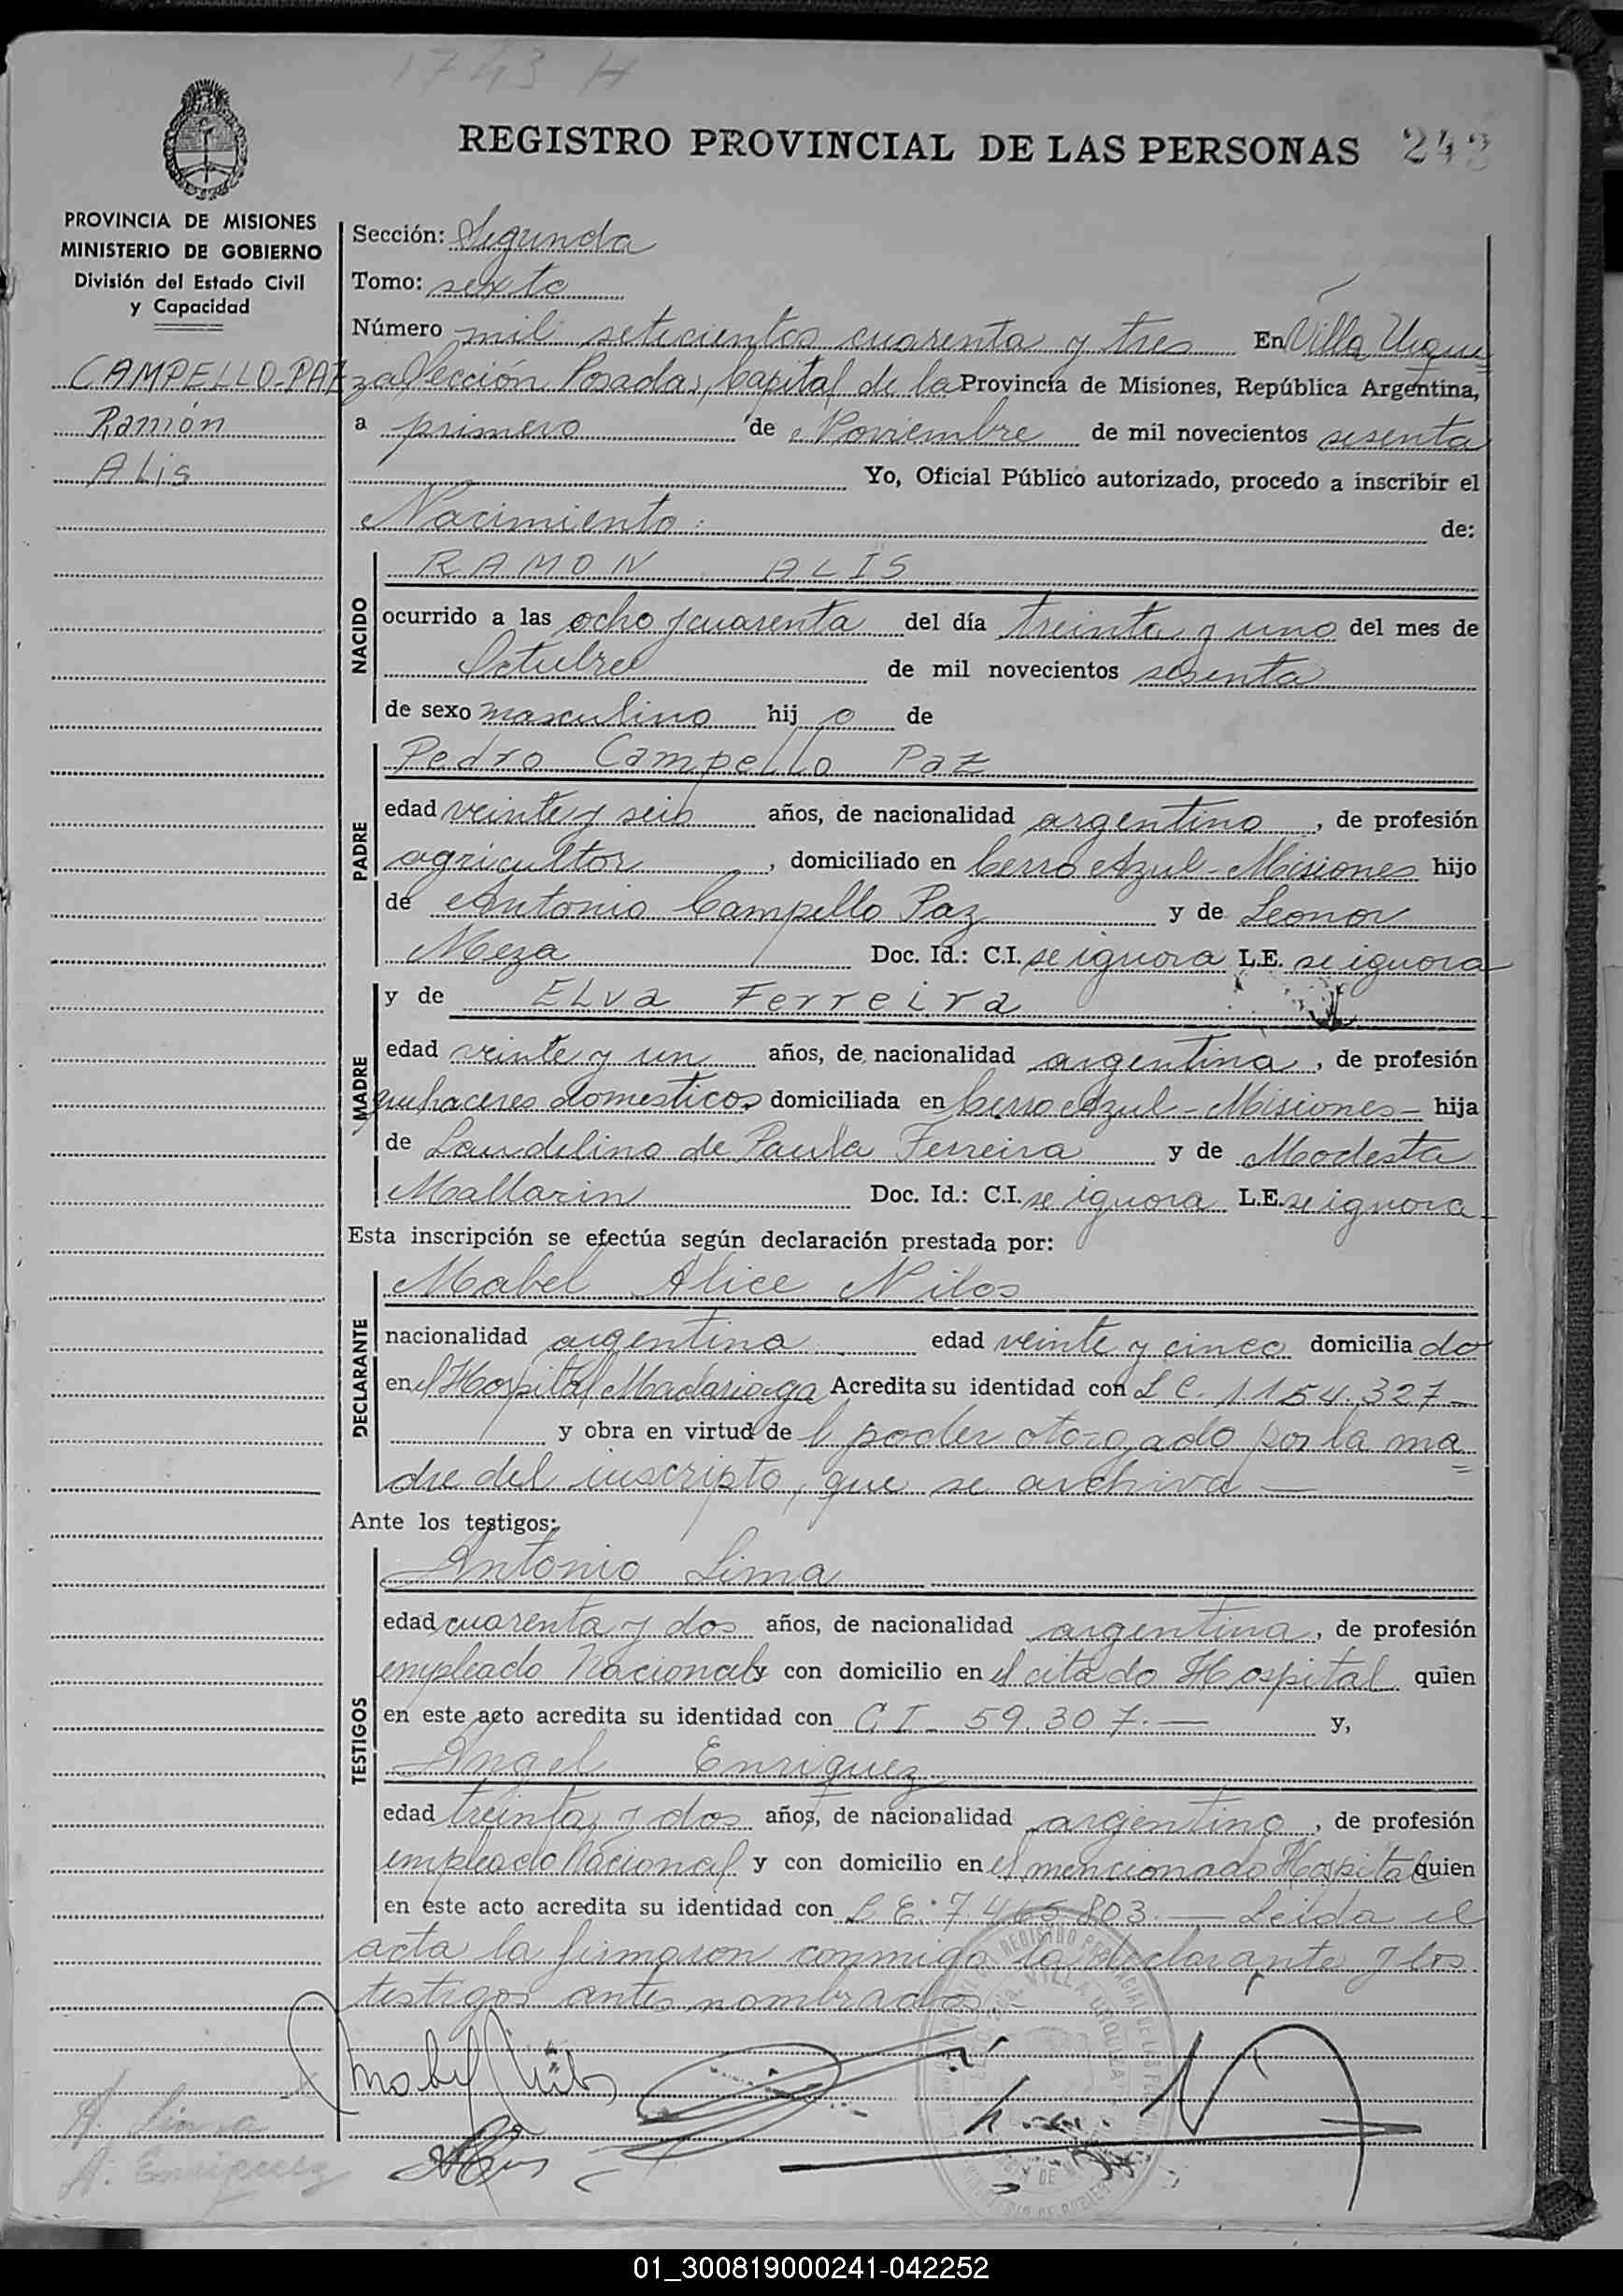 1743 H
REGISTRO PROVINCIAL DE LAS PERSONAS 243
PROVINCIA DE MISIONES
MINISTERIO DE GOBIERNO
División del Estado Civil
y Capacidad
CAMPELLO-PAZ
Ramón
ALis
Sección: Segunda
Tomo: sexto
Número mil setecientos cuarenta y tres En Villa Urqui=
za Sección Posadas, Capital de la Provincia de Misiones, República Argentina,
a primero de Noviembre de mil novecientos sesenta
Yo, Oficial Público autorizado, procedo a inscribir el
Nacimiento: de:
NACIDO
RAMON ALIS
ocurrido a las ocho y cuarenta del día treinta y uno del mes de
Octubre de mil novecientos sesenta
de sexo masculino hij o de
PADRE
Pedro Campello Paz
edad veinte y seis años, de nacionalidad argentino, de profesión
agricultor, domiciliado en Cerro Azul - Misiones hijo
de Antonio Campello Paz y de Leonor
Meza Doc. Id.: C.I. se ignora L.E. se ignora
MADRE
y de ELva Ferreira
edad veinte y un años, de nacionalidad argentina, de profesión
quehaceres domesticos domiciliada en Cerro Azul - Misiones - hija
de Laudelino de Paula Ferreira y de Modesta
Mallarin Doc. Id.: C.I. se ignora L.E. se ignora
Esta inscripción se efectúa según declaración prestada por:
DECLARANTE
Mabel Alice Nilos
nacionalidad argentina edad veinte y cinco domicilia do
en el Hospital Madariaga Acredita su identidad con L C. 1.154.327-
y obra en virtud de l poder otorgado por la ma=
dre del inscripto, que se archiva -
Ante los testigos:
TESTIGOS
Antonio Lima
edad cuarenta y dos años, de nacionalidad argentina, de profesión
empleado Nacional y con domicilio en el citado Hospital quien
en este acto acredita su identidad con C.I- 59.307.- y,
Angel Enriquez
edad treinta y dos años, de nacionalidad argentino, de profesión
empleado Nacional y con domicilio en el mencionado Hospital quien
en este acto acredita su identidad con L.E. 7.465.803.- Leida el
acta la firmaron conmigo la declarante y los
testigos antes nombrados.-
A. Lima
A. Enriquez
01_300819000241-042252